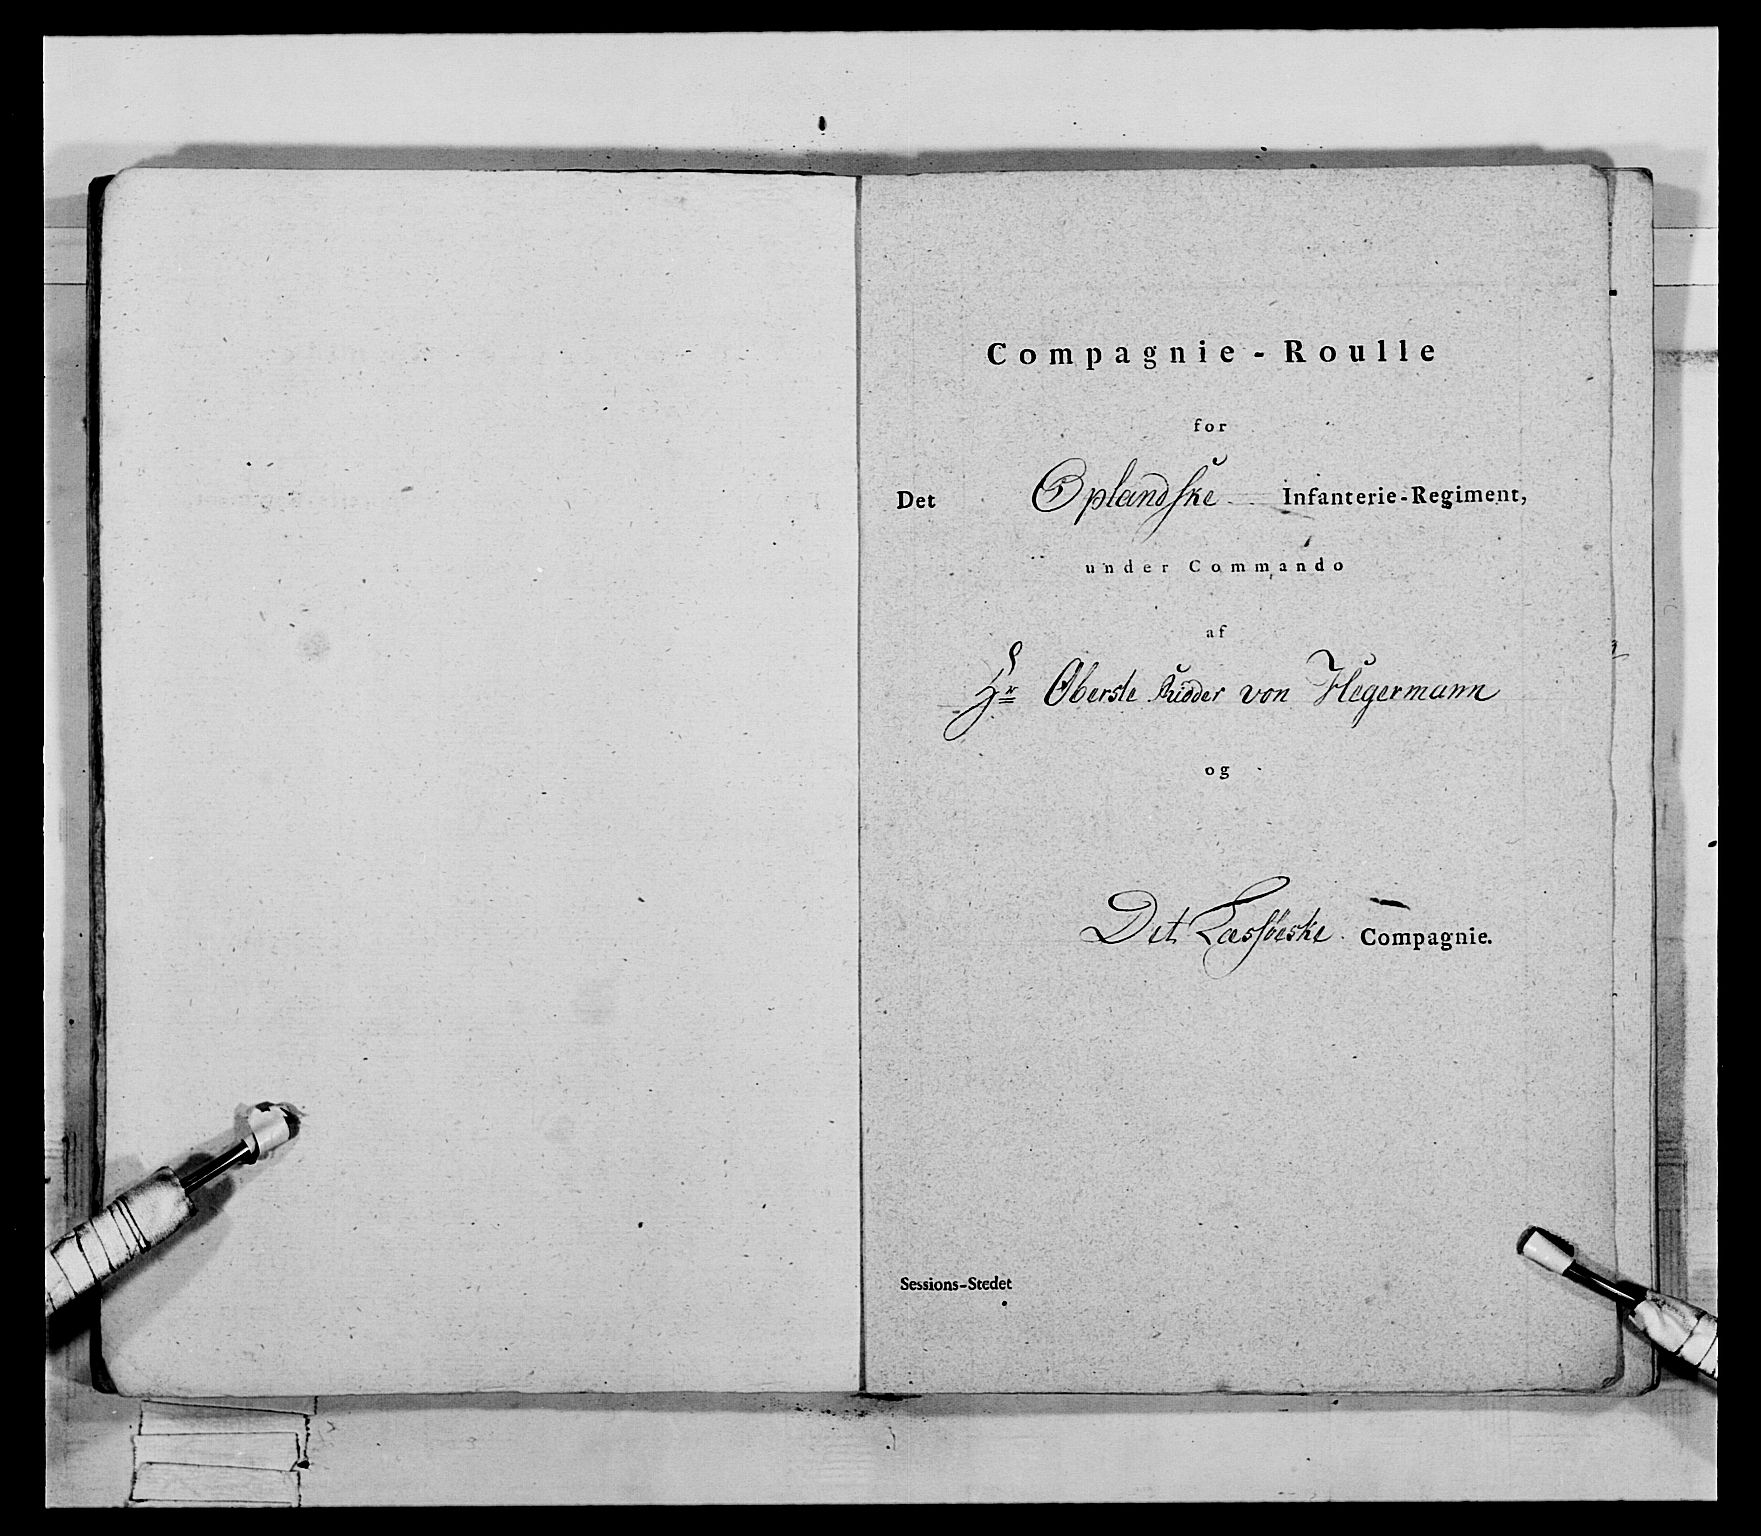 Compagnie-Roulle
for
Det Oplandske Infanterie-Regiment,
under Commando
af
Hr Oberste Ridder von Hegermann
og
Det Læssøeske Compagnie.
Sessions-Stedet